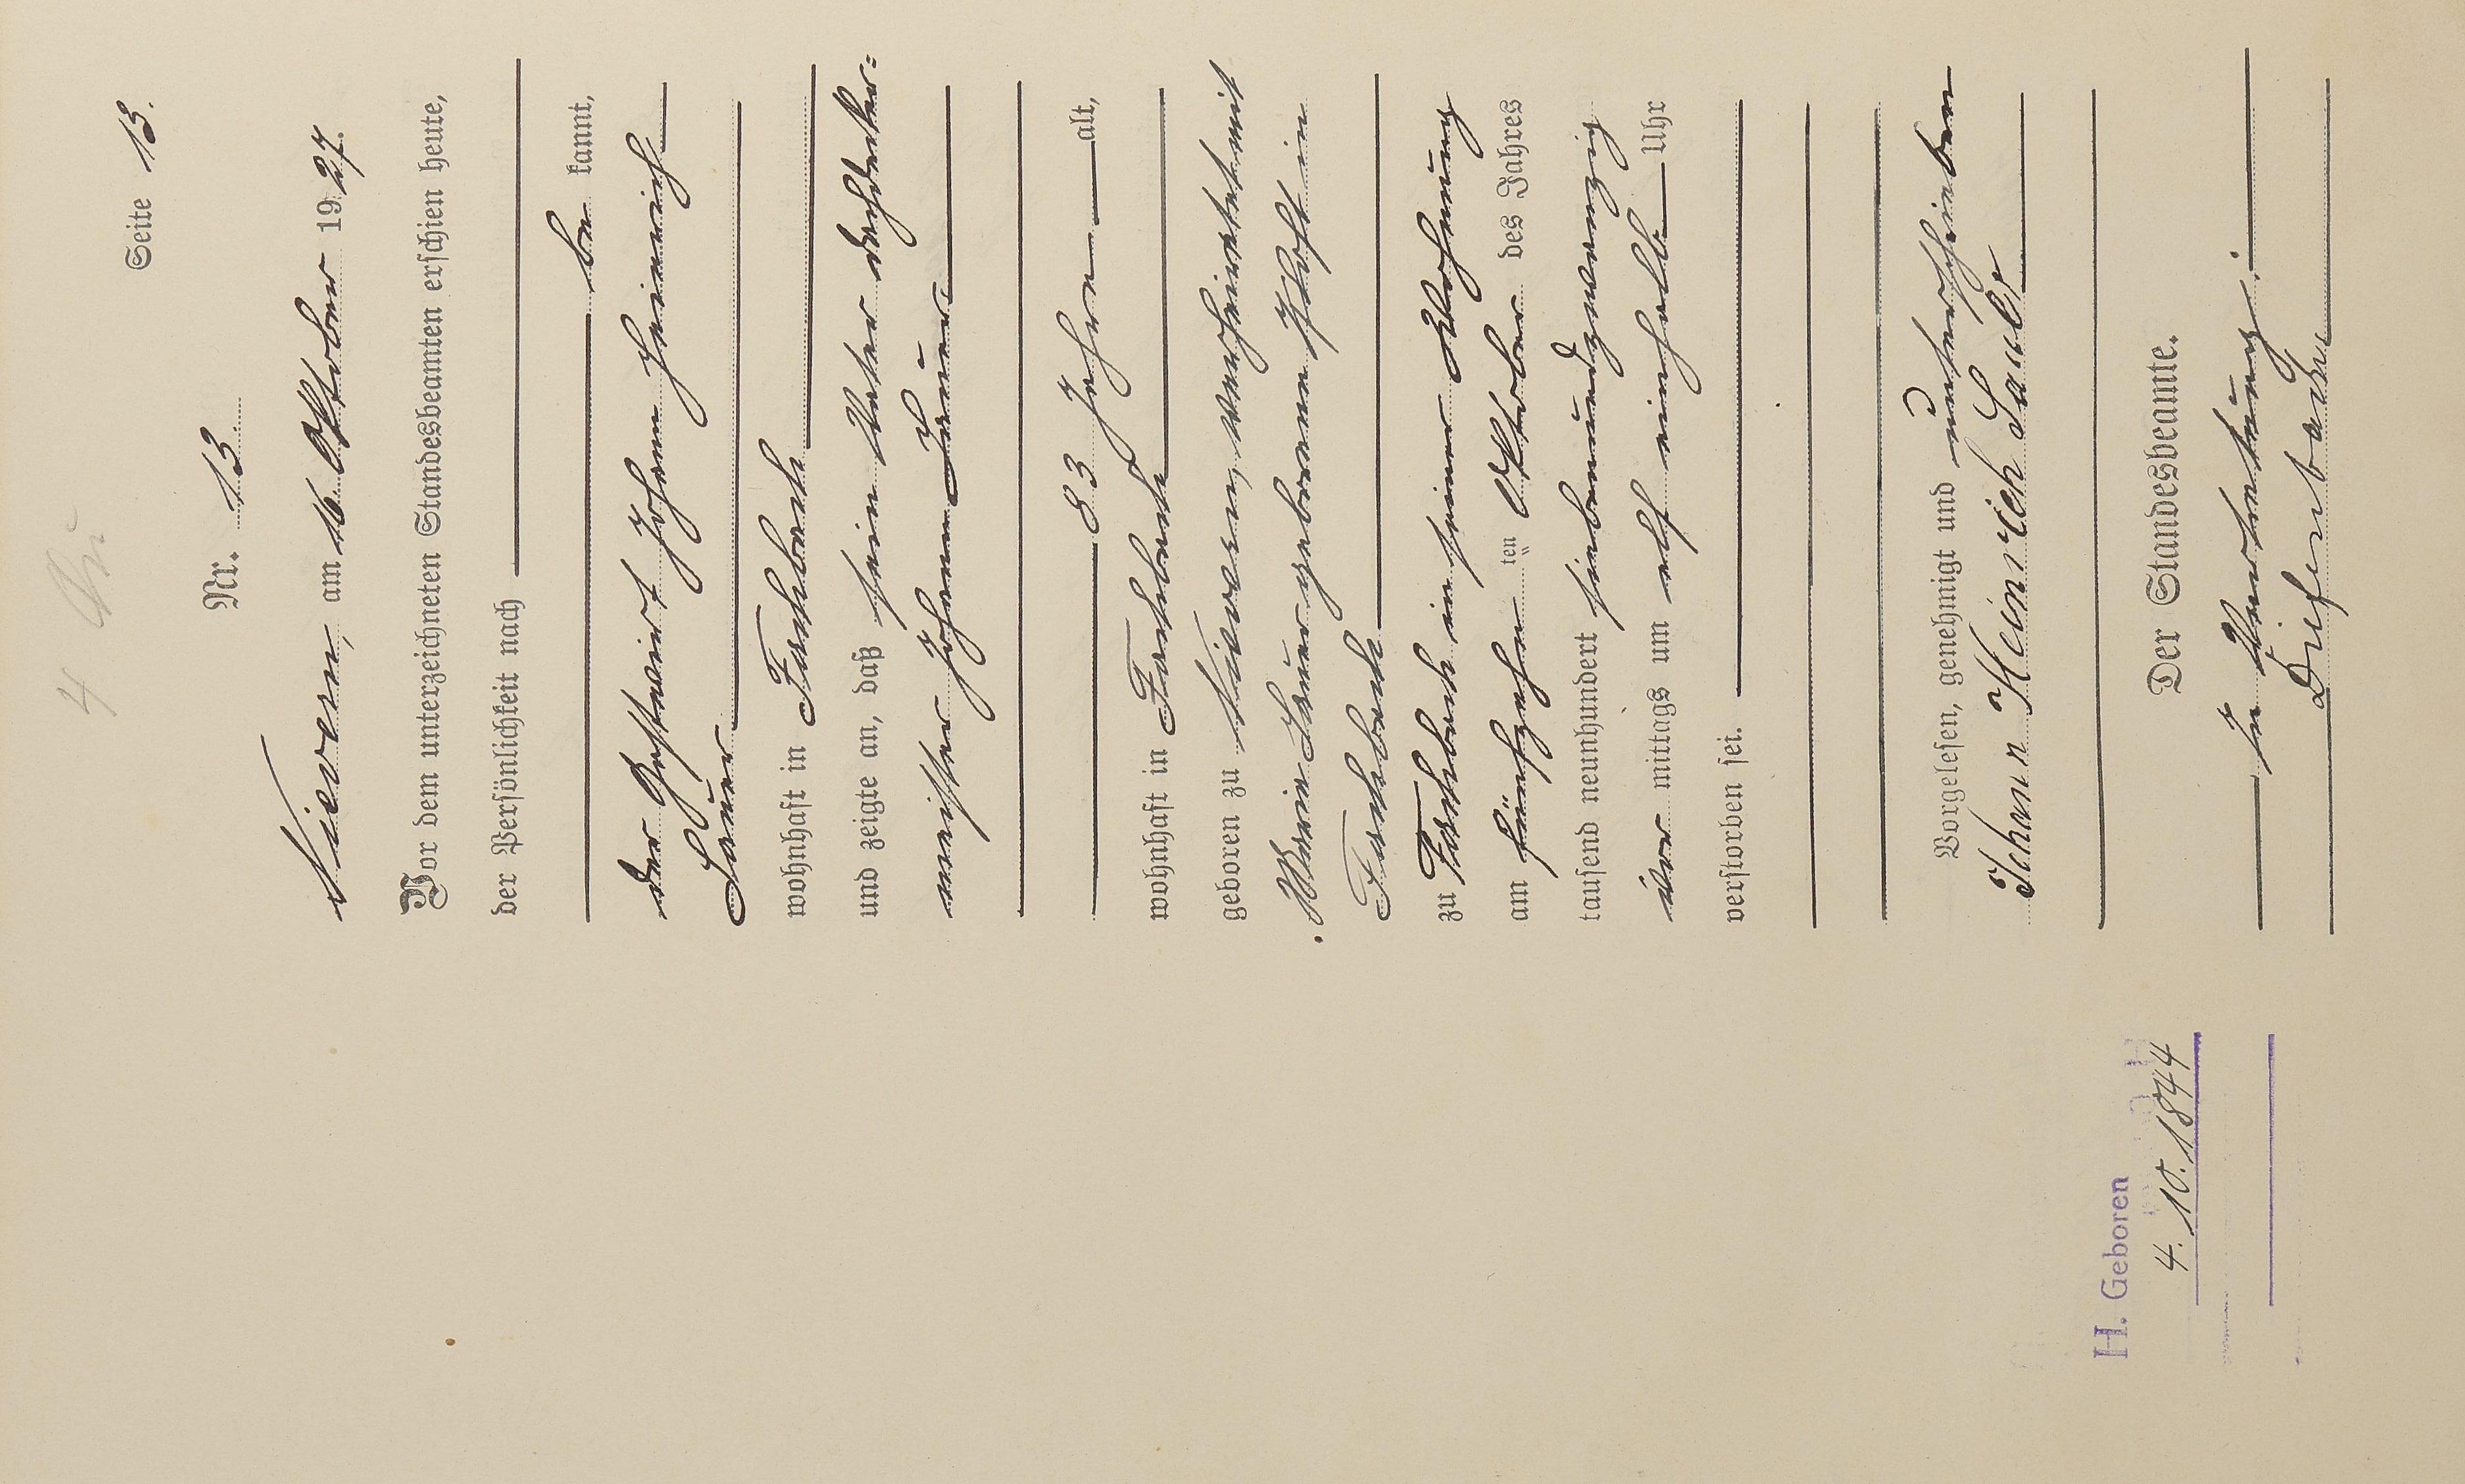 Seite 13.
Nr. 13.
Nievern, am 16. Oktober 1927.
Vor dem unterzeichneten Standesbeamten erschien heute,
der Persönlichkeit nach
be kannt,
der Gastwirt Johann Heinrich
Lauer
wohnhaft in Fachbach
und zeigte an, daß sein Vater Dachdecker=
meister Johann Lauer
83 Jahre alt,
wohnhaft in Fachbach
geboren zu Nievern, verheiratet mit
Maria Lauer geborene in
Fachbach
zu Fachbach in seiner Wohnung
am fünfzehn ten Oktober des Jahres
tausend neunhundert siebenundzwanzig
vor mittags um elf einhalb Uhr
verstorben sei.
Vorgelesen, genehmigt und unterschrieben
Johann Heinrich Lauer
Der Standesbeamte.
In Vertretung:
Diefenbach
H. Geboren
4. 10. 1844